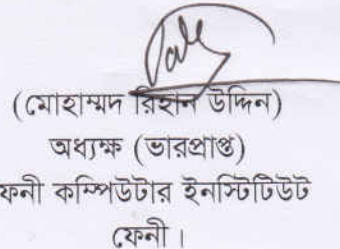 (মোহাম্মদ রিহান উদ্দিন)
অধ্যক্ষ (ভারপ্রাপ্ত)
ফেনী কম্পিউটার ইনস্টিটিউট
ফেনী।